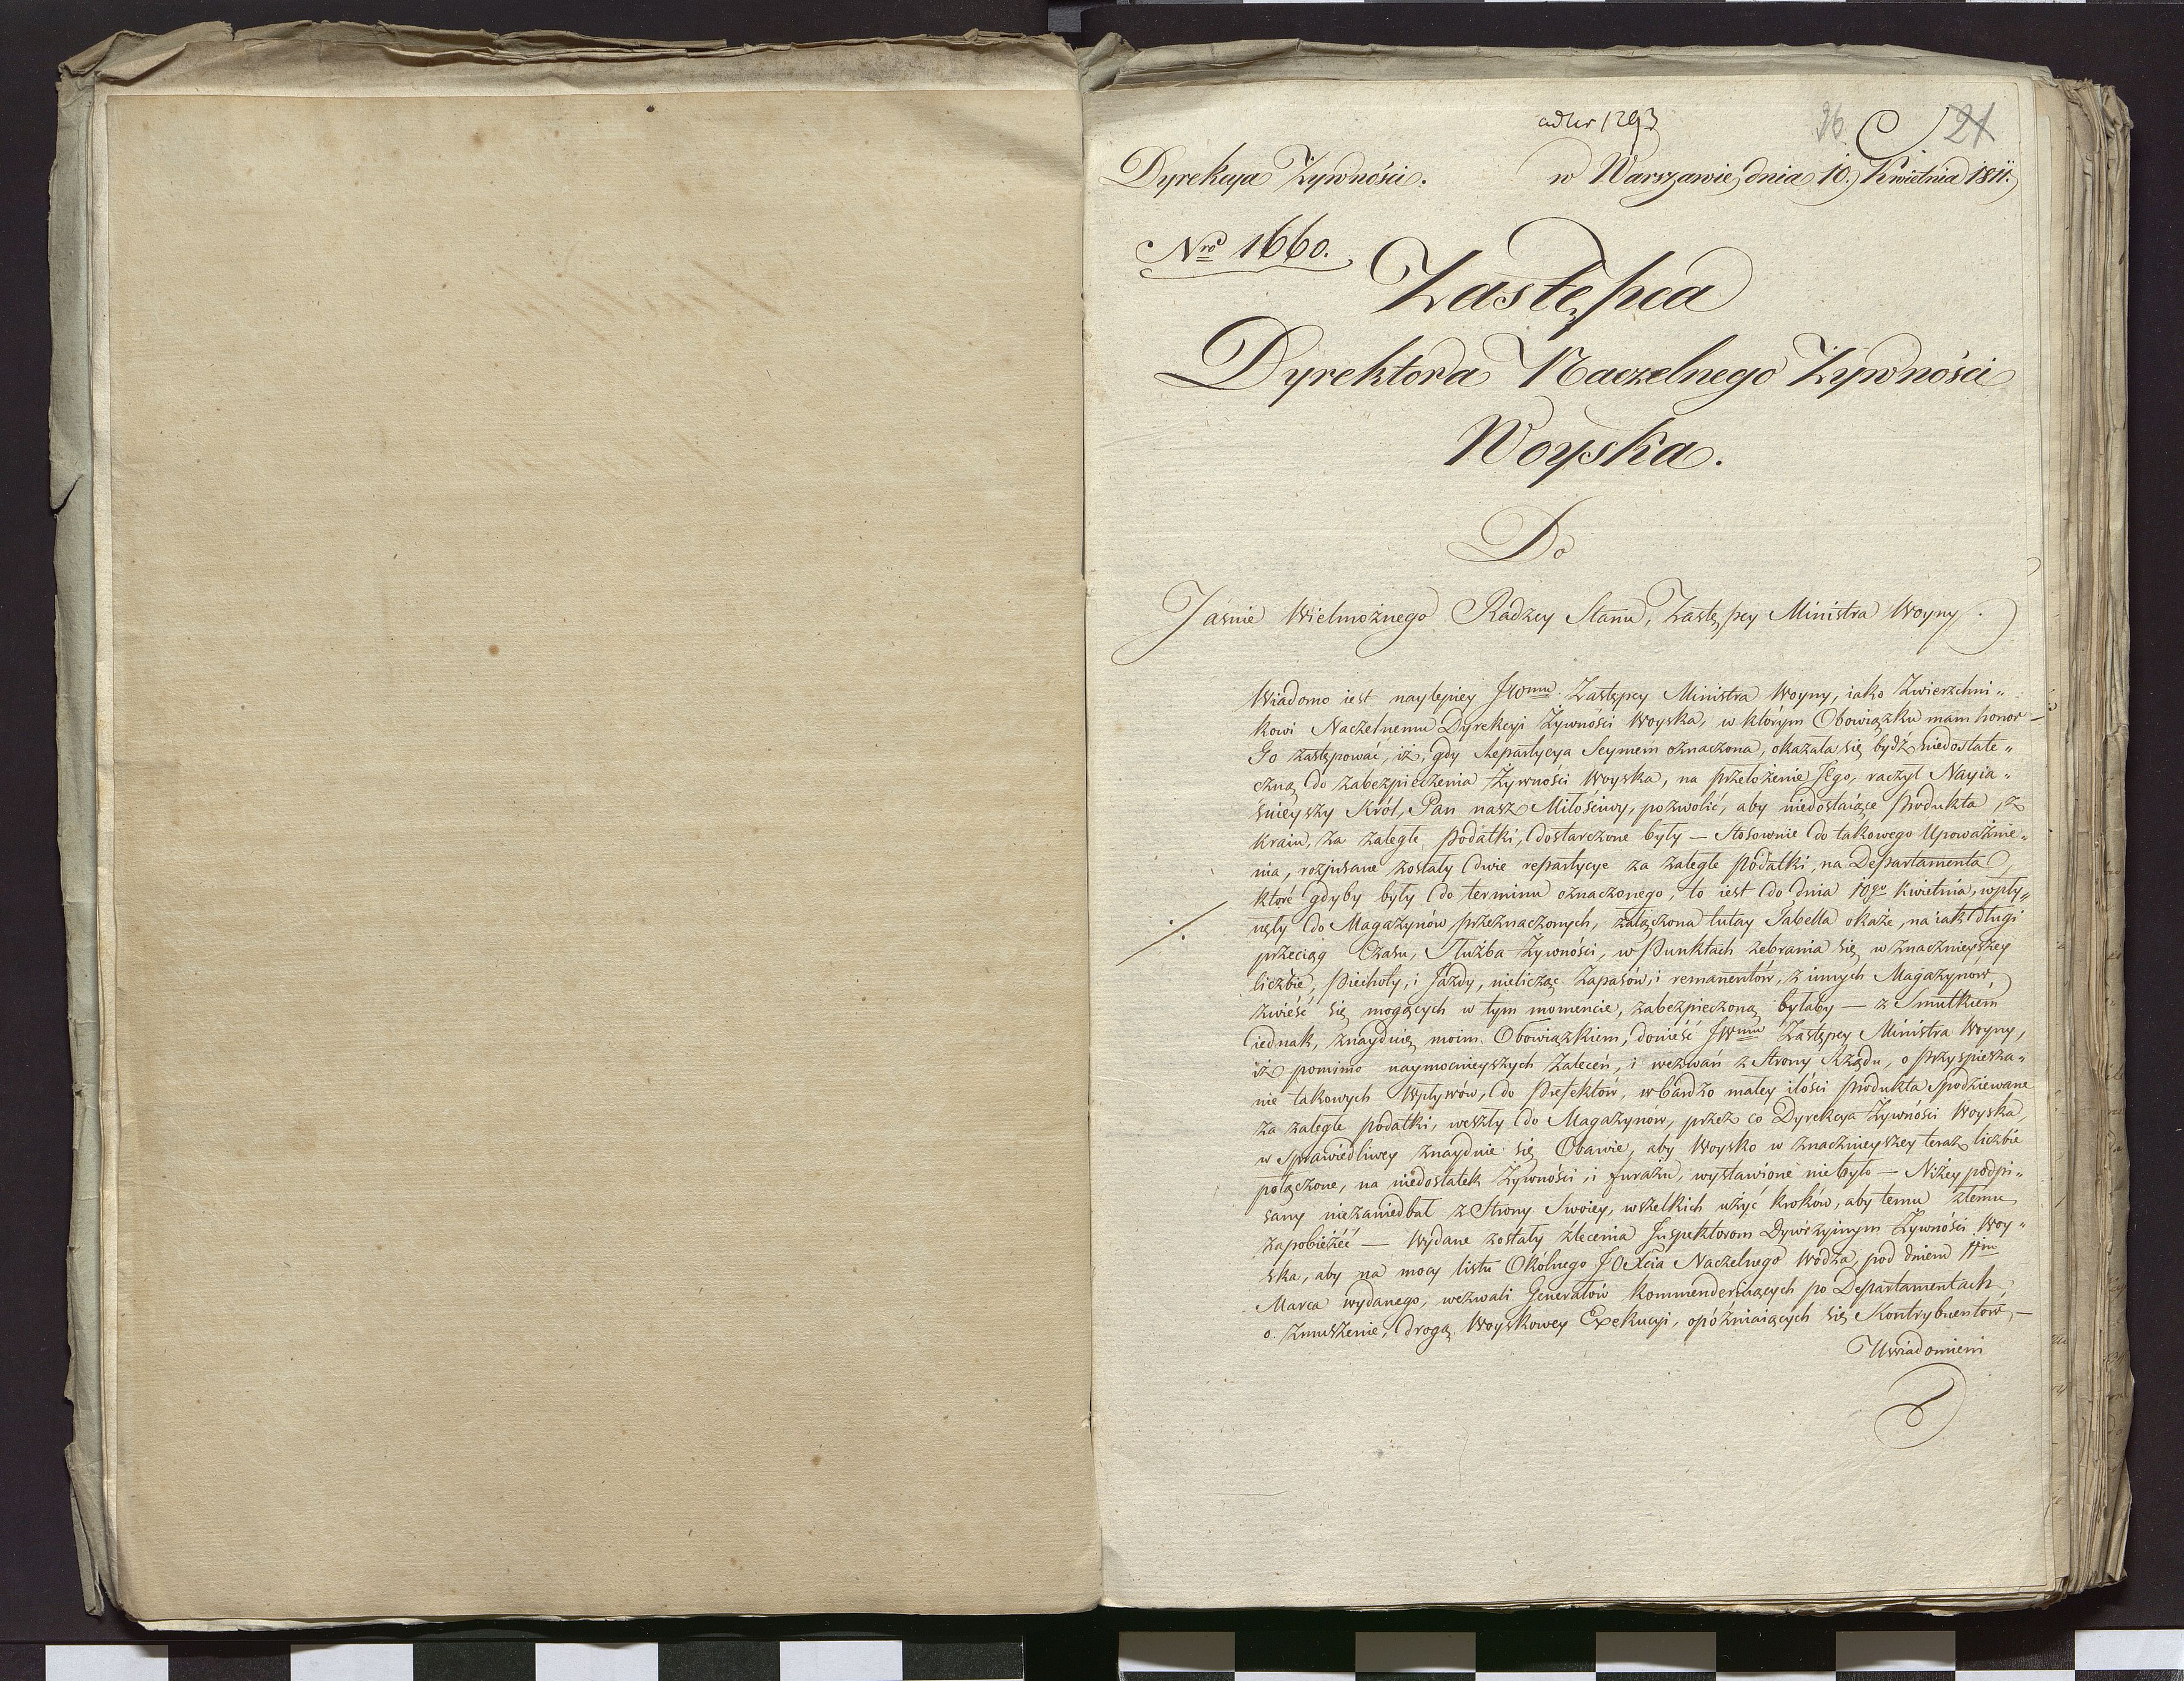 36 21
Dyrekcya Żywności. w Warszawie dnia 10. Kwietnia 1811.
Nro 1660.
Zastępca
Dyrektora Naczelnego Żywności
Woyska.
Do
Jaśnie Wielmożnego Radzcy Stanu, Zastępcy Ministra Woyny.
Wiadomo iest naylepiey JWmu Zastępcy Ministra Woyny, iako Zwierzchni„
kowi Naczelnemu Dyrekcyi Żywności Woyska, w którym Obowiązku mam honor
Go zastępować, iż, gdy Repartycya Seymem oznaczona, okazała się bydź niedostate„
czną do zabezpieczenia Żywności Woyska, na przełożenie JEgo, raczył Nayia„
śnieyszy Król, Pan nasz Miłościwy, pozwolić, aby niedostaiące Produkta z
kraiu, za zaległe podatki, dostarczone były — Stosownie do takowego Upoważnie„
nia, rozpisane zostały dwie repartycye za zaległe podatki, na Departamenta,
które gdyby były do terminu oznaczonego, to iest do dnia 10go Kwietnia, wpły„
nęły do Magazynów przeznaczonych, załączona tutay Tabella okaże, na iak długi
przeciąg Czasu, Służba Żywności, w Punktach zebrania się w znacznieyszey
liczbie, Piechoty, i Jazdy, nielicząc Zapasów, i remanentów, z innych Magazynów
zwieść się mogących w tym momencie, zabezpieczoną byłaby — z Smutkiem
iednak, znayduię moim Obowiązkiem, donieść JWmu Zastępcy Ministra Woyny,
iż pomimo naymocnieyszych Zaleceń, i wezwań z Strony Rządu, o przyspiesza„
nie takowych Wpływów, do Prefektów, w bardzo małey ilości produkta Spodziewane
za zaległe podatki, weszły do Magazynów, przez co Dyrekcya Żywności Woyska,
w sprawiedliwey znayduie się Obawie, aby Woysko w znacznieyszey teraz liczbie
połączone, na niedostatek Żywności, i furażu, wystawione nie było — Niżey podpi„
sany niezaniedbał z Strony Swoiey, wszelkich użyć kroków, aby temu złemu
zapobieżeć — Wydane zostały zlecenia Inspektorom Dywizyinym Żywności Woy„
ska, aby na mocy listu Okólnego JOXcia Naczelnego Wodza, pod dniem
Marca wydanego, wezwali Generałów kommenderuiących po Departamentach,
o zmuszenie, drogą Woyskowey Exekucyi, opóźniaiących się Kontrybuentów, —
Uwiadomieni